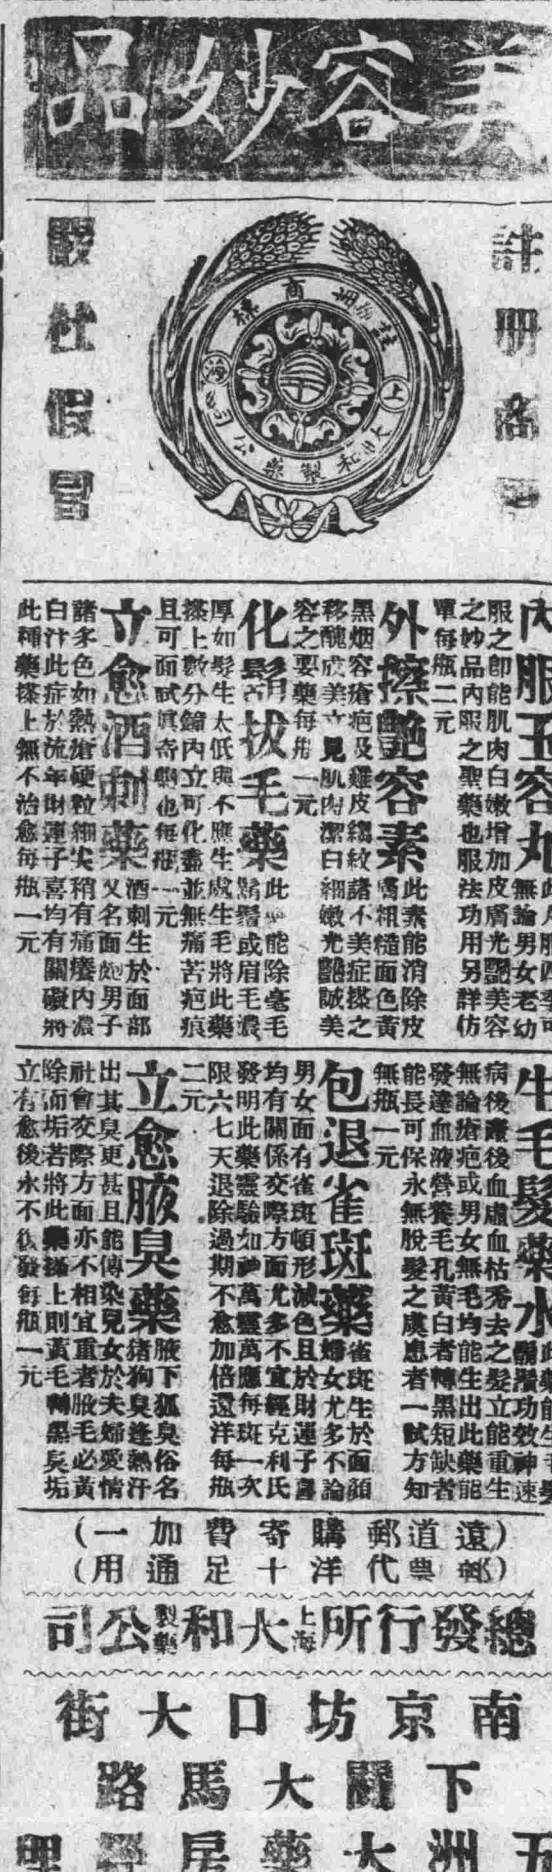 美容妙品
註册商標
嚴杜假冒
註册商標
上海
大和製藥公司
內服玉容丸
無論男女老幼
服之卽能肌肉白嫩增加皮膚光艷美容
之妙品內服之聖藥也服法功用另詳仿
單每瓶二元
外擦艷容素
此素能消除皮
膚粗糙面色黃
黑烟容瘡疤及雞皮縐紋諸不美症搽之
移醜成美立見肌肉潔白細嫩光艷誠美
容之要藥每瓶一元
化鬍拔毛藥
此藥能除毫毛
鬍鬚或眉毛濃
厚如髮生太低與不應生處生毛將此藥
搽上數分鐘內立可化盡並無痛苦疤痕
且可面試眞奇藥也每瓶一元
立愈酒刺藥
酒刺生於面部
又名面皰男子
諸多色如熱瘡硬粒細尖稍有痛癢內濃
白汁此症於流年財運子喜均有關礙將
此種藥搽上無不治愈每瓶一元
生毛髮藥水
此藥能生毛髮
鬍鬚功效神速
病後產後血虛血枯禿去之髮立能重生
無論瘡疤或男女無毛均能生出此藥能
發達血液營養毛孔黃白者轉黑短缺者
能長可保永無脫髮之虞患者一試方知
每瓶一元
包退雀斑藥
雀斑生於面顏
婦女尤多不論
男女面有雀斑頓形減色且於財運子喜
均有關係交際方面尤多不宜經克利氏
發明此藥靈驗如神萬靈萬應每斑一次
限六七天退除過期不愈加倍還洋每瓶
二元
立愈腋臭藥
腋下狐臭俗名
猪狗臭逢熱汗
出其臭更甚且能傳染兒女於夫婦愛情
社會交際方面亦不相宜重者腋毛必黃
除而垢若將此藥搽上則黃毛轉黑臭垢
立有愈後永不復發每瓶一元
(遠道郵購寄費加一)
(郵票代洋十足通用)
總發行所上海大和製藥公司
南京坊口大街
下關大馬路
五洲大藥房